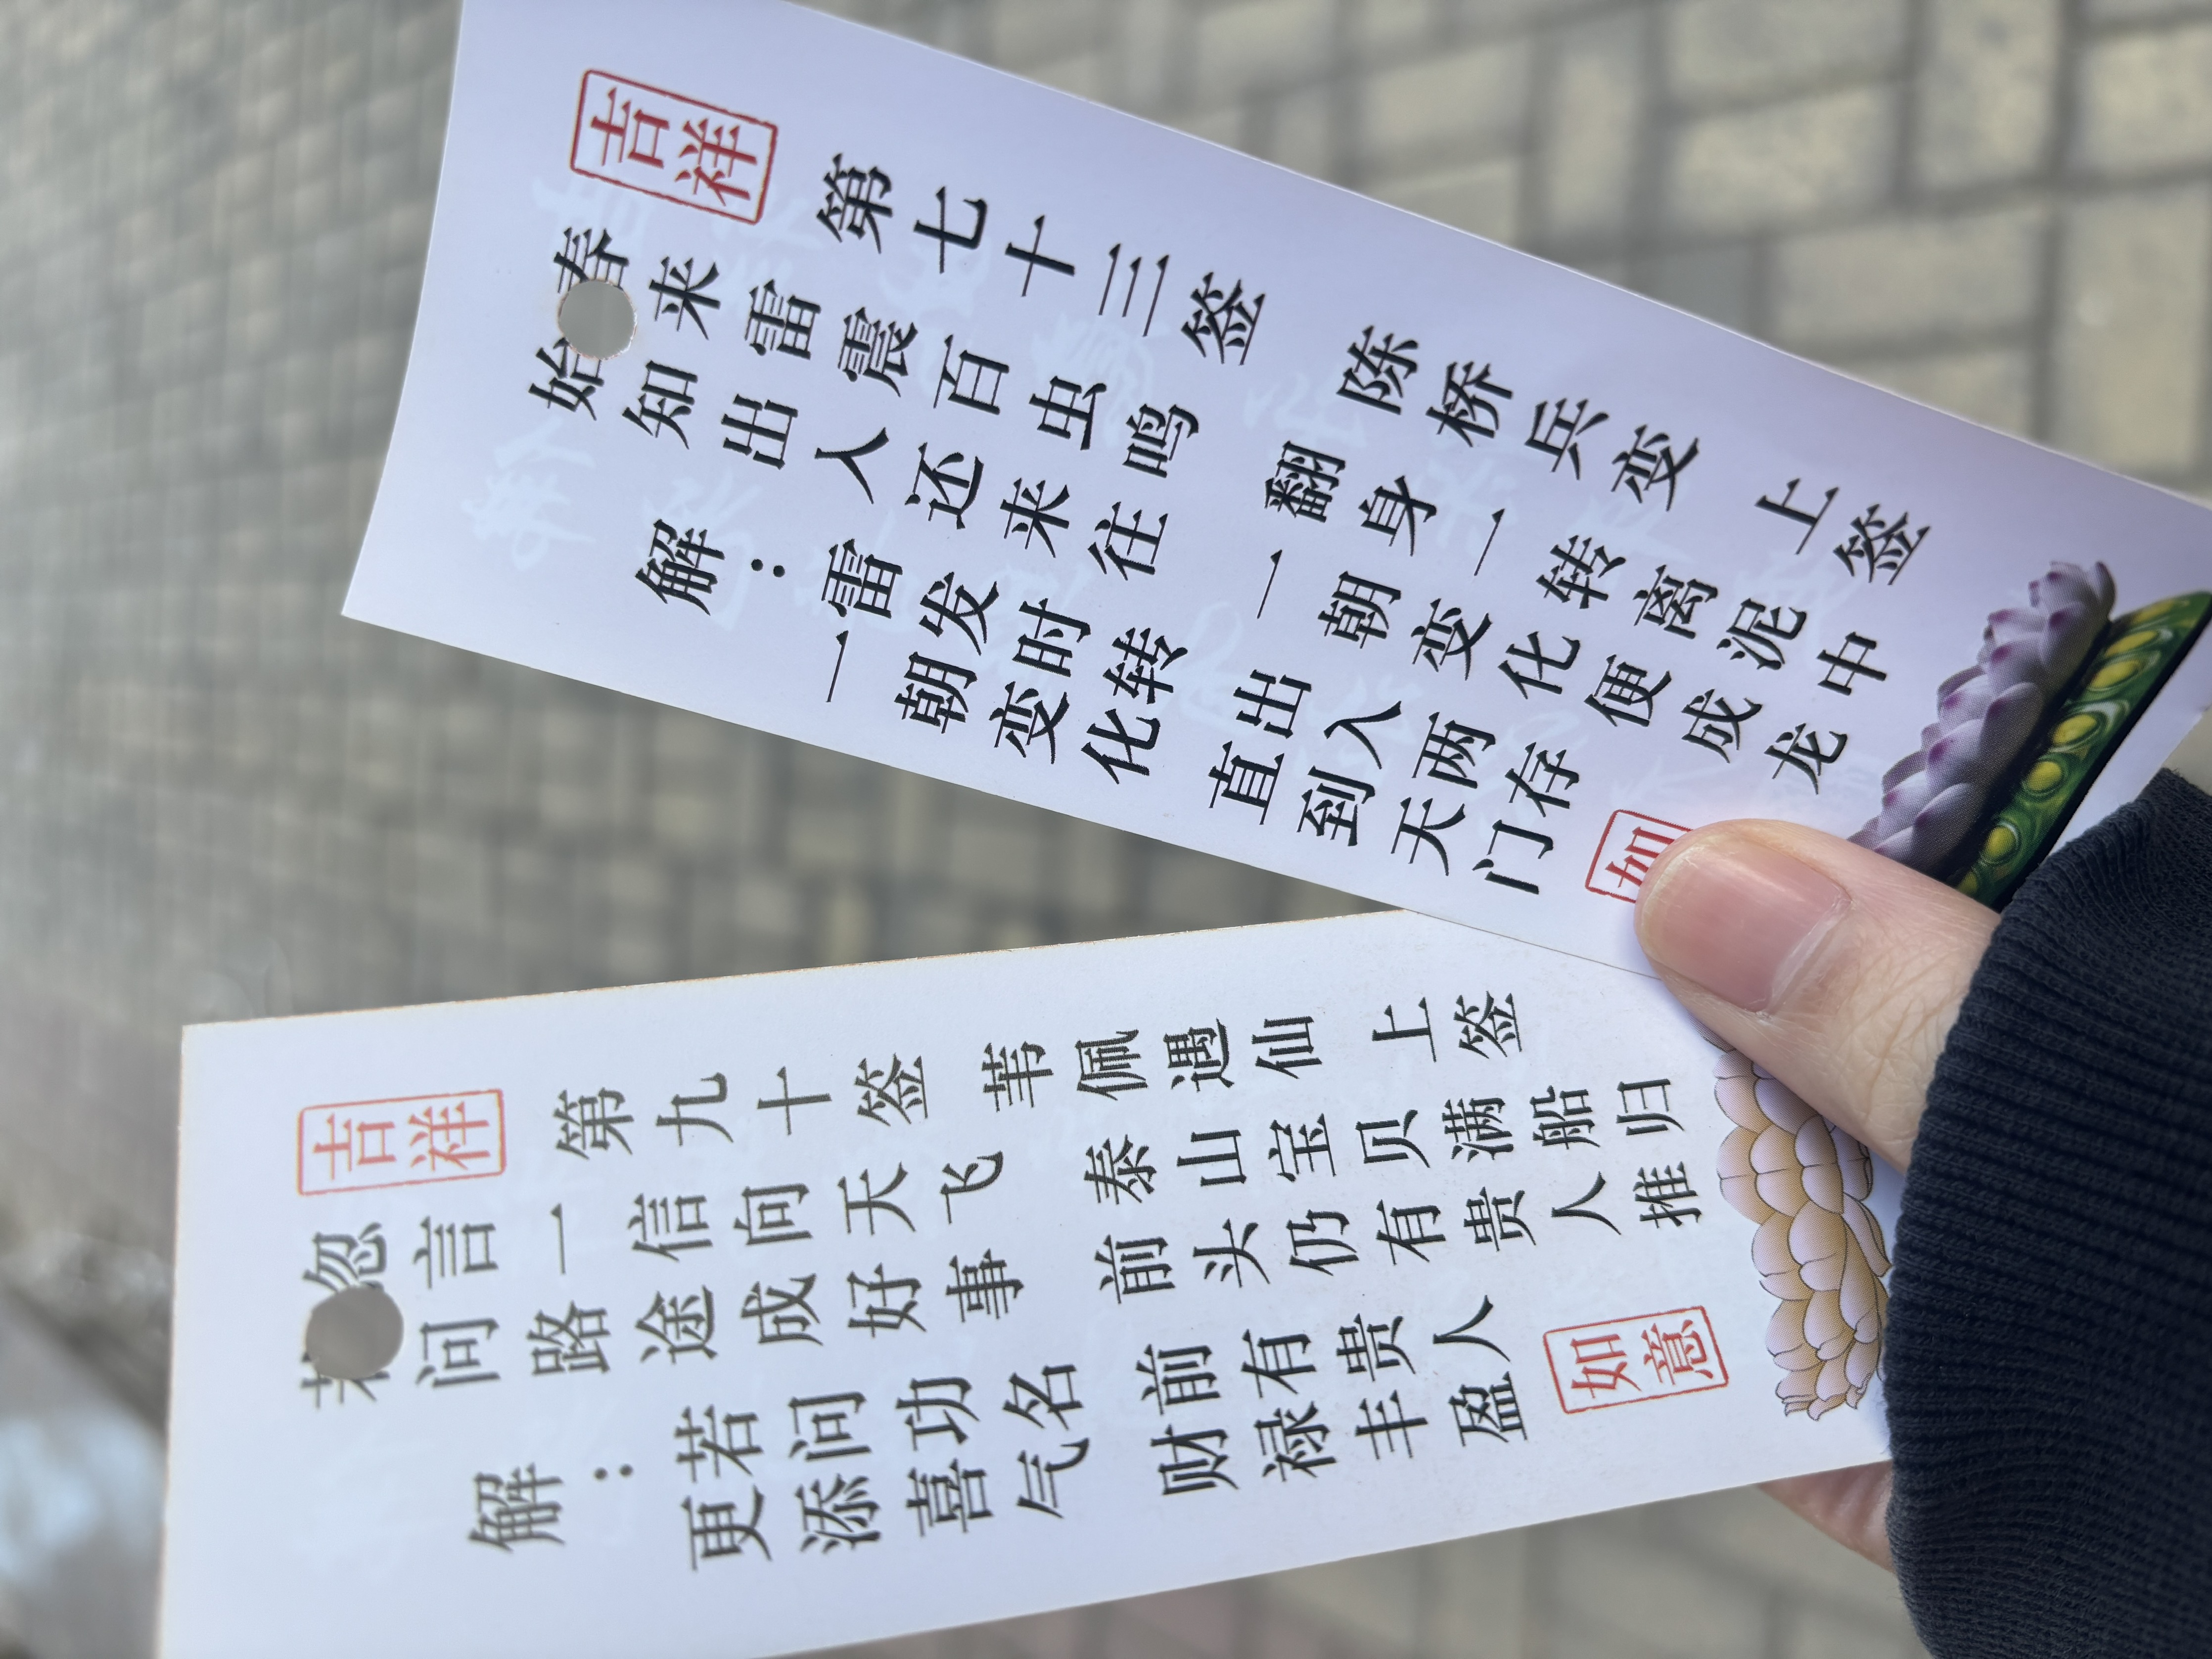 吉祥
第七十三签 陈桥兵变 上签
春来雷震百虫鸣 翻身一转离泥中
始知出人还来往 一朝变化便成龙
解：
雷发时转 出入两存
一朝变化 直到天门
如
吉祥
第九十签 苇佩遇仙 上签
忽言一信向天飞 泰山宝贝满船归
若问路途成好事 前头仍有贵人推
解：
若问功名 前有贵人
更添喜气 财禄丰盈
如意